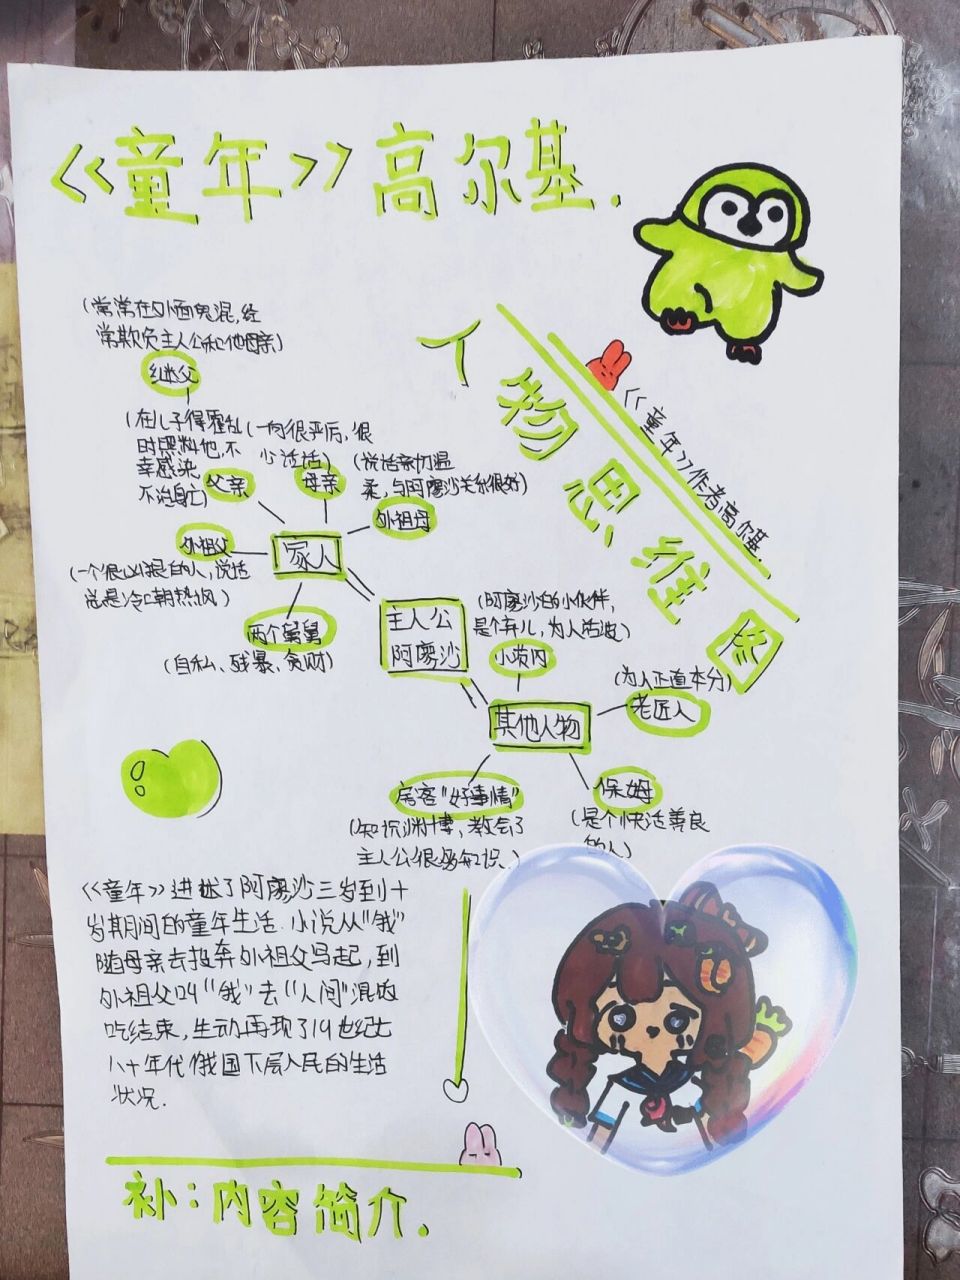 《童年》高尔基.
人物思维图
《童年》作者高尔基.
(常常在外面鬼混,经
常欺负主人公和他母亲)
继父
(在儿子得霍乱
时照料他,不
幸感染
不治身亡)
父亲
(一向很严厉,很
少说话)
母亲
(说话亲切温
柔,与阿廖沙关系很好)
外祖母
外祖父
(一个很凶狠的人,说话
总是冷嘲热讽)
家人
两个舅舅
(自私、残暴、贪财)
主人公
阿廖沙
(阿廖沙的小伙伴,
是个弃儿,为人活波)
小茨冈
(为人正直本分)
老匠人
其他人物
房客"好事情"
(知识渊博,教会了
主人公很多知识.)
保姆
(是个快活善良
的人)
《童年》进述了阿廖沙三岁到十
岁期间的童年生活.小说从"我"
随母亲去投奔外祖父写起,到
外祖父叫"我"去"人间"混饭
吃结束,生动再现了19世纪七
八十年代俄国下层人民的生活
状况.
补:内容简介.